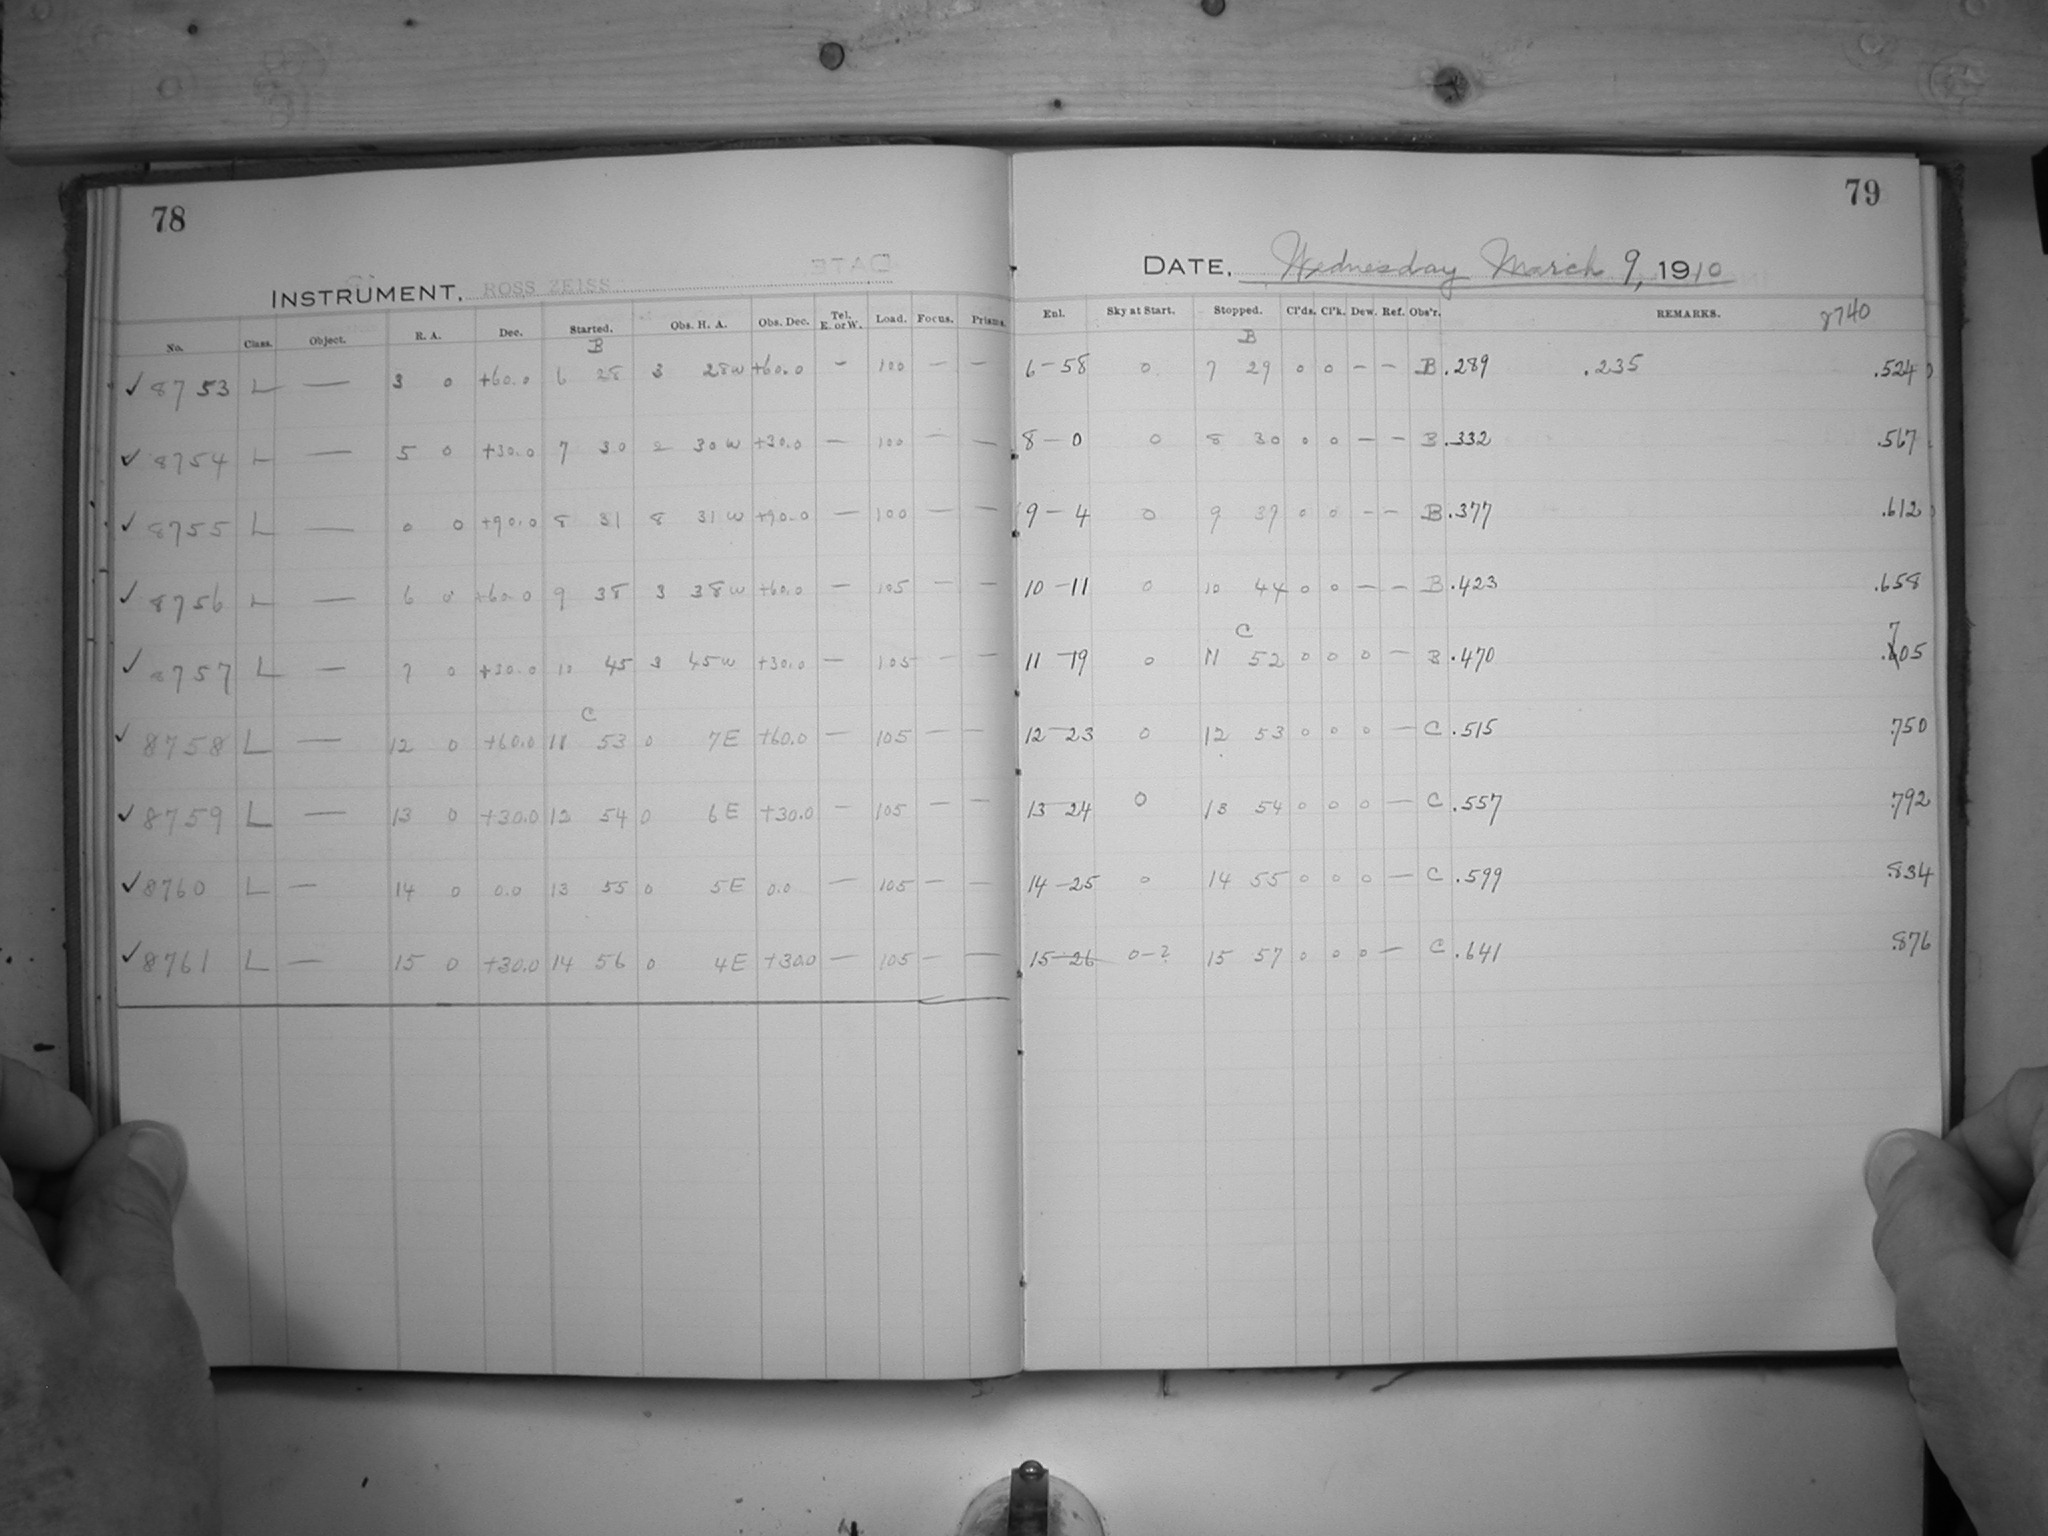 78
79
INSTRUMENT. ROSS ZEISS
DATE. Wednesday March 9, 1910
No. Class. Object. R. A. Dec. Started. Obs. H. A. Obs. Dec. Tel. E. or W. Load. Focus. Prisms. Enl. Sky at Start. Stopped. Cl'ds. Cl'k. Dew. Ref. Obs'r. REMARKS. 8740
B B
✓ 8753 L — 3 0 +60.0 6 28 3 28w +60.0 — 100 — — 6-58 0 7 29 0 0 — — B .289 .235 .524
✓ 8754 L — 5 0 +30.0 7 30 2 30w +30.0 — 100 — — 8-0 0 8 30 0 0 — — B .332 .567
✓ 8755 L — 0 0 +90.0 8 31 8 31w +90.0 — 100 — — 9-4 0 9 37 0 0 — — B .377 .612
✓ 8756 L — 6 0 +60.0 9 38 3 38w +60.0 — 105 — — 10-11 0 10 44 0 0 — — B .423 .658
C 7
✓ 8757 L — 7 0 +30.0 10 45 3 45w +30.0 — 105 — — 11-19 0 11 52 0 0 0 — B .470 .605
C
✓ 8758 L — 12 0 +60.0 11 53 0 7E +60.0 — 105 — — 12-23 0 12 53 0 0 0 — C .515 .750
✓ 8759 L — 13 0 +30.0 12 54 0 6E +30.0 — 105 — — 13 24 0 13 54 0 0 0 — C .557 .792
✓ 8760 L — 14 0 0.0 13 55 0 5E 0.0 — 105 — — 14-25 0 14 55 0 0 0 — C .599 .834
✓ 8761 L — 15 0 +30.0 14 56 0 4E +30.0 — 105 — — 15-26 0-2 15 57 0 0 0 — C .641 .876